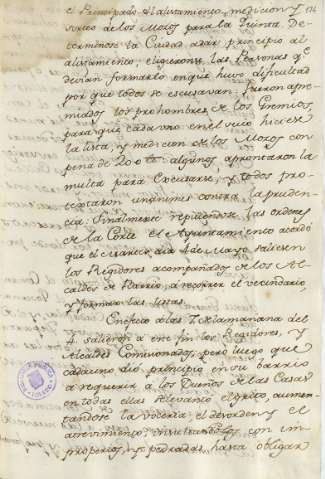 el Principado el alistamiento, medicion y
sorteo de los Mozos para la Quinta. De-
terminose la Ciudad a dar principio al
alistamiento; eligieronse las Personas qe
devian formarlo en que huvo dificultad
por que todos se escusavan: fueron apre-
miados los prohombres de los Gremios,
para que cada uno en el suio hiciese
la lista, y medicion de los Mozos con
pena de 200 algunos aprontaron la
multa para Escusarse, y todos pro-
textaron unanimes contra la pruden-
cia: finalmente repitiendose las ordenes
de la Corte el Ayuntamiento acordó
que el Martes, dia 4 de Mayo saliesen
los Regidores acompañados de los Al-
caldes de Barrio, a recorrer el vecindario
y formar las listas.
En efecto a las 7 de la mañana del
4 salieron a este fin los Regidores, y
Alcaldes Comisionados, pero luego que
cada uno dió principio en su barrio
a requerir a los Dueños de las Casas
en todas ellas se levantó el grito, aumen-
tandose la voceria, el desorden y el
atrevimiento, insultandolos con im-
properios, y pedradas, hasta obligar